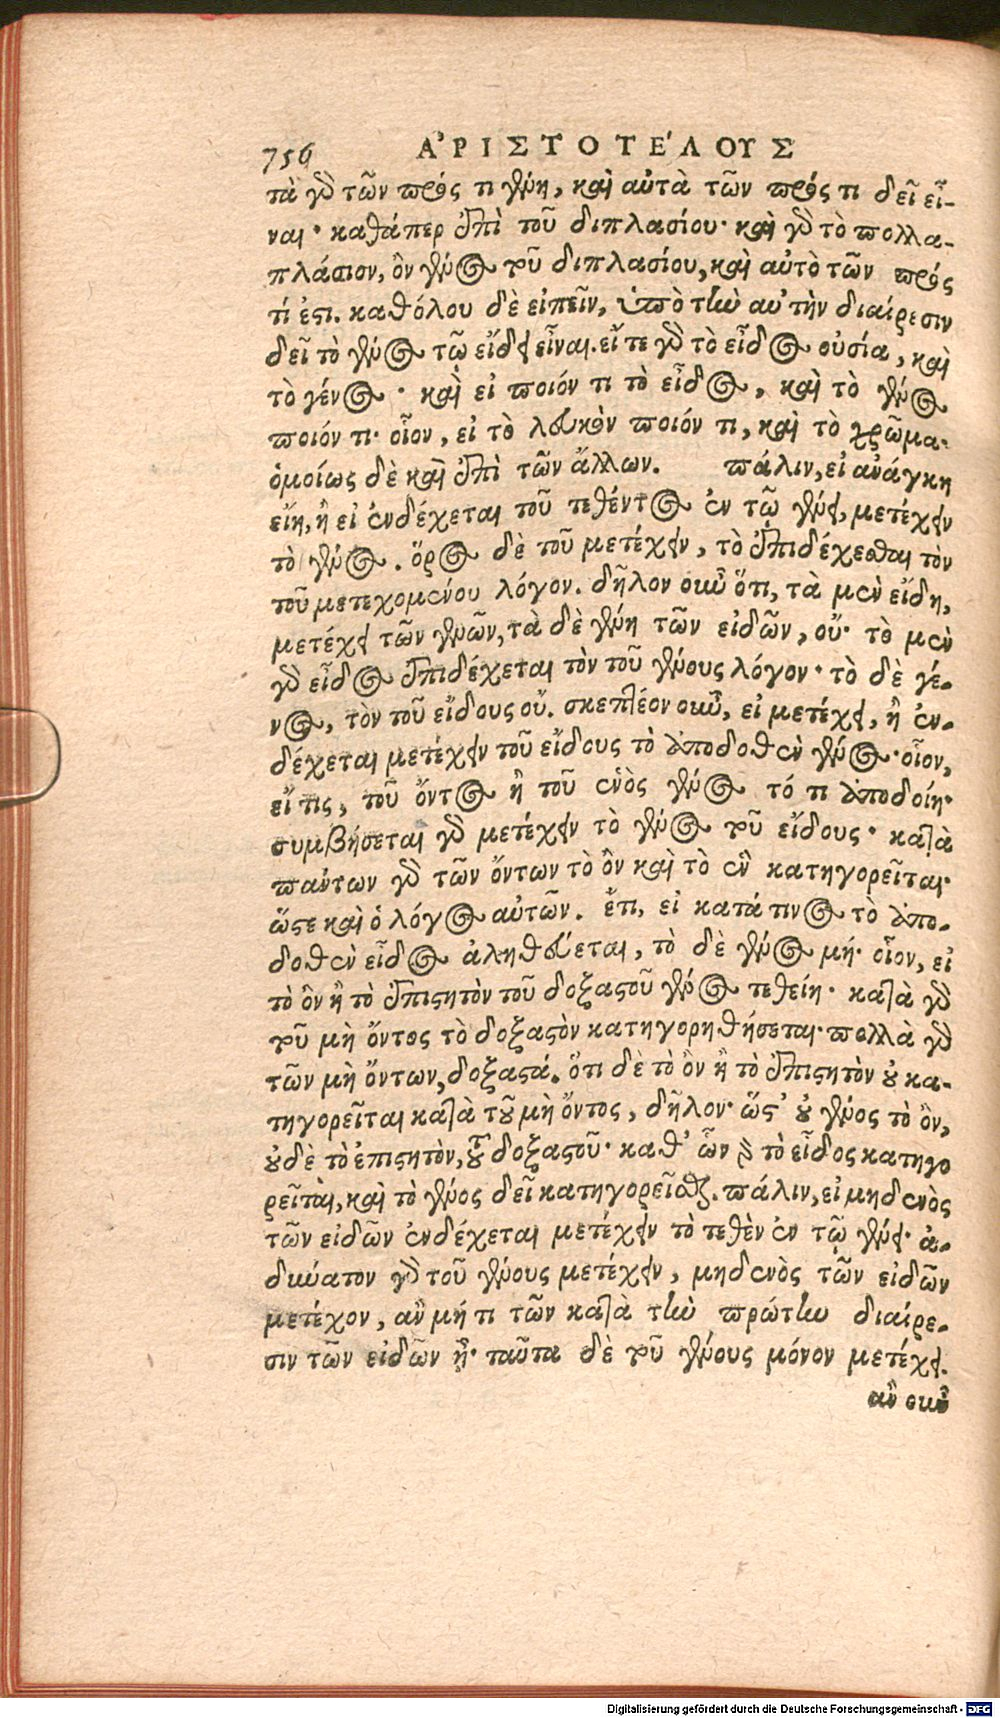 756 ἈΡΙΣΤΟΤΈΛΟΥΣ
τὰ γὰρ τῶν πρός τι γένη, καὶ αὐτὰ τῶν πρός τι δεῖ εἶ-
ναι· καθάπερ ἐπὶ τοῦ διπλασίου· καὶ γὰρ τὸ πολλα-
πλάσιον, ὂν γένος τοῦ διπλασίου, καὶ αὐτὸ τῶν πρός
τί ἐστι. καθόλου δὲ εἰπεῖν, ὑπὸ τὴν αὐτὴν διαίρεσιν
δεῖ τὸ γένος τῷ εἴδει εἶναι. εἴ τε γὰρ τὸ εἶδος οὐσία, καὶ
τὸ γένος· καὶ εἰ ποιόν τι τὸ εἶδος, καὶ τὸ γένος
ποιόν τι· οἷον, εἰ τὸ λευκὸν ποιόν τι, καὶ τὸ χρῶμα·
ὁμοίως δὲ καὶ ἐπὶ τῶν ἄλλων. πάλιν, εἰ ἀνάγκη
εἴη, ἢ εἰ ἐνδέχεται τοῦ τεθέντος ἐν τῷ γένει, μετέχειν
τὸ γένος. ὅρος δὲ τοῦ μετέχειν, τὸ ἐπιδέχεσθαι τὸν
τοῦ μετεχομένου λόγον. δῆλον οὖν ὅτι, τὰ μὲν εἴδη,
μετέχει τῶν γενῶν, τὰ δὲ γένη τῶν εἰδῶν, οὔ· τὸ μὲν
γὰρ εἶδος ἐπιδέχεται τὸν τοῦ γένους λόγον· τὸ δὲ γέ-
νος, τὸν τοῦ εἴδους οὔ. σκεπτέον οὖν, εἰ μετέχει, ἢ ἐν-
δέχεται μετέχειν τοῦ εἴδους τὸ ἀποδοθὲν γένος· οἷον,
εἴ τις, τοῦ ὄντος ἢ τοῦ ἑνὸς γένος τό τι ἀποδοίη·
συμβήσεται γὰρ μετέχειν τὸ γένος τοῦ εἴδους· κατὰ
πάντων γὰρ τῶν ὄντων τὸ ὂν καὶ τὸ ἓν κατηγορεῖται·
ὥστε καὶ ὁ λόγος αὐτῶν. ἔτι, εἰ κατά τινος τὸ ἀπο-
δοθὲν εἶδος ἀληθεύεται, τὸ δὲ γένος μή· οἷον, εἰ
τὸ ὂν ἢ τὸ ἐπιστητὸν τοῦ δοξαστοῦ γένος τεθείη· κατὰ γὰρ
τοῦ μὴ ὄντος τὸ δοξαστὸν κατηγορηθήσεται· πολλὰ γὰρ
τῶν μὴ ὄντων, δοξαστά. ὅτι δὲ τὸ ὂν ἢ τὸ ἐπιστητὸν οὐ κα-
τηγορεῖται κατὰ τοῦ μὴ ὄντος, δῆλον· ὥστ' οὐ γένος τὸ ὂν,
οὐδὲ τὸ ἐπιστητὸν, τοῦ δοξαστοῦ· καθ' ὧν γὰρ τὸ εἶδος κατηγο
ρεῖται, καὶ τὸ γένος δεῖ κατηγορεῖσθαι. πάλιν, εἰ μηδενὸς
τῶν εἰδῶν ἐνδέχεται μετέχειν τὸ τεθὲν ἐν τῷ γένει· ἀ-
δύνατον γὰρ τοῦ γένους μετέχειν, μηδενὸς τῶν εἰδῶν
μετέχον, ἂν μή τι τῶν κατὰ τὴν πρώτην διαίρε-
σιν τῶν εἰδῶν ᾖ· ταῦτα δὲ τοῦ γένους μόνον μετέχει.
ἂν οὖν
Digitalisierung gefördert durch die Deutsche Forschungsgemeinschaft - DFG